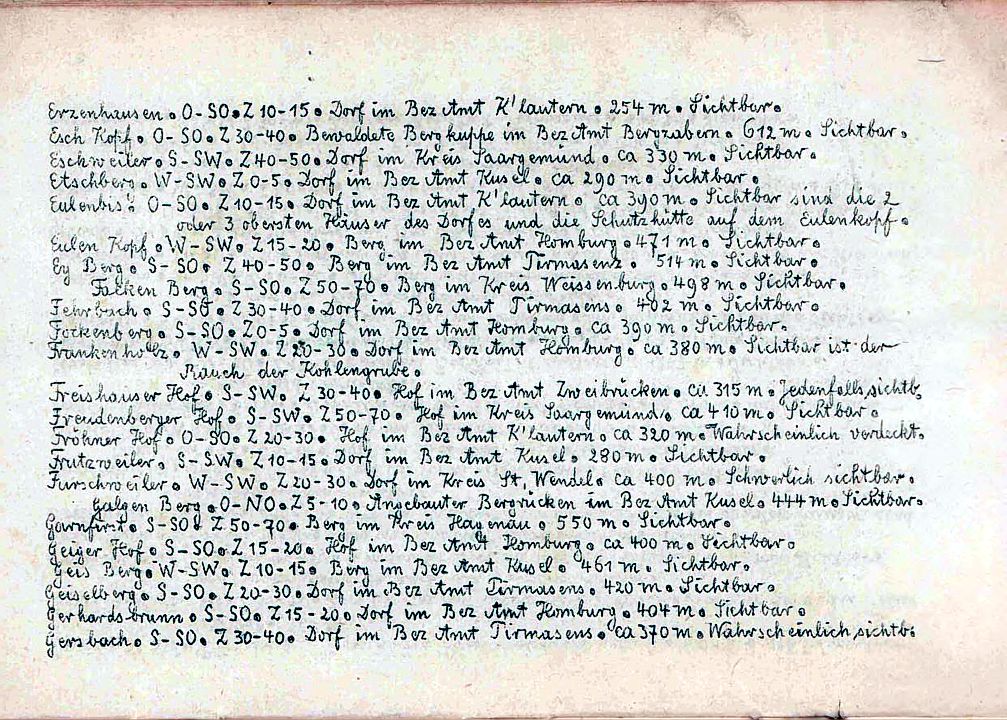 Erzenhausen. O-SO. Z 10-15. Dorf im Bez Amt K'lautern. 254 m. Sichtbar.
Esch Kopf. O-SO. Z 30-40. Bewaldete Bergkuppe im Bez Amt Bergzabern. 612 m. Sichtbar.
Eschweiler. S-SW. Z 40-50. Dorf im Kreis Saargemünd. ca 330 m. Sichtbar.
Etschberg. W-SW. Z 0-5. Dorf im Bez Amt Kusel. ca 290 m. Sichtbar.
Eulenbis. O-SO. Z 10-15. Dorf im Bez Amt K'lautern. ca 390 m. Sichtbar sind die 2
oder 3 obersten Häuser des Dorfes und die Schutzhütte auf dem Eulenkopf.
Eulen Kopf. W-SW. Z 15-20. Berg im Bez Amt Homburg. 471 m. Sichtbar.
Ey Berg. S-SO. Z 40-50. Berg im Bez Amt Pirmasens. 514 m. Sichtbar.
Facken Berg. S-SO. Z 50-70. Berg im Kreis Weissenburg. 498 m. Sichtbar.
Fehrbach. S-SO. Z 30-40. Dorf im Bez Amt Pirmasens. 402 m. Sichtbar.
Fockenberg. S-SO. Z 0-5. Dorf im Bez Amt Homburg. ca 390 m. Sichtbar.
Frankenholz. W-SW. Z 20-30. Dorf im Bez Amt Homburg. ca 380 m. Sichtbar ist der
Rauch der Kohlengrube.
Freishauser Hof. S-SW. Z 30-40. Hof im Bez Amt Zweibrücken. ca 315 m. Jedenfalls sichtb.
Freudenberger Hof. S-SW. Z 50-70. Hof im Kreis Saargemünd. ca 410 m. Sichtbar.
Fröhner Hof. O-SO. Z 20-30. Hof im Bez Amt K'lautern. ca 320 m. Wahrscheinlich verdeckt.
Frutzweiler. S-SW. Z 10-15. Dorf im Bez Amt Kusel. 280 m. Sichtbar.
Furschweiler. W-SW. Z 20-30. Dorf im Kreis St. Wendel. ca 400 m. Schwerlich sichtbar.
Galgen Berg. O-NO. Z 5-10. Angebauter Bergrücken im Bez Amt Kusel. 444 m. Sichtbar.
Garnfirst. S-SO. Z 50-70. Berg im Kreis Hagenau. 550 m. Sichtbar.
Geiger Hof. S-SO. Z 15-20. Hof im Bez Amt Homburg. ca 400 m. Sichtbar.
Geis Berg. W-SW. Z 10-15. Berg im Bez Amt Kusel. 461 m. Sichtbar.
Geiselberg. S-SO. Z 20-30. Dorf im Bez Amt Pirmasens. 420 m. Sichtbar.
Gerhardsbrunn. S-SO. Z 15-20. Dorf im Bez Amt Homburg. 404 m. Sichtbar.
Gersbach. S-SO. Z 30-40. Dorf im Bez Amt Pirmasens. ca 370 m. Wahrscheinlich sichtb.